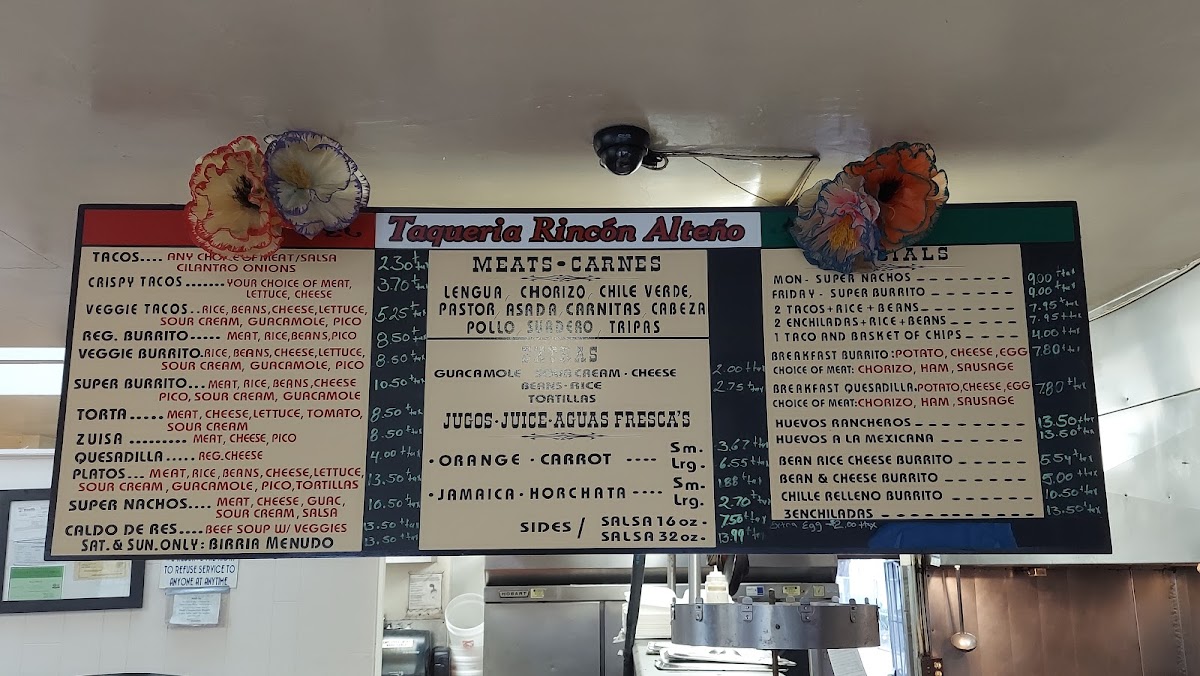 Taqueria Rincón Alteño
TACOS.... ANY CHOICE OF MEAT/SALSA 2.30 + tax
CILANTRO ONIONS
CRISPY TACOS ........YOUR CHOICE OF MEAT, 3.70 + tax
LETTUCE, CHEESE
VEGGIE TACOS..RICE, BEANS, CHEESE, LETTUCE, 5.25 + tax
SOUR CREAM, GUACAMOLE, PICO
REG. BURRITO..... MEAT, RICE, BEANS, PICO 8.50 + tax
VEGGIE BURRITO.RICE, BEANS, CHEESE, LETTUCE, 8.50 + tax
SOUR CREAM, GUACAMOLE, PICO
SUPER BURRITO... MEAT, RICE, BEANS, CHEESE 10.50 + tax
PICO, SOUR CREAM, GUACAMOLE
TORTA ..... MEAT, CHEESE, LETTUCE, TOMATO, 8.50 + tax
SOUR CREAM
ZUISA .......... MEAT, CHEESE, PICO 8.50 + tax
QUESADILLA ..... REG.CHEESE 4.00 + tax
PLATOS... MEAT, RICE, BEANS, CHEESE, LETTUCE, 13.50 + tax
SOUR CREAM, GUACAMOLE, PICO, TORTILLAS
SUPER NACHOS.... MEAT, CHEESE, GUAC, 10.50 + tax
SOUR CREAM, SALSA
CALDO DE RES...BEEF SOUP W/ VEGGIES 13.50 + tax
SAT. & SUN. ONLY: BIRRIA MENUDO 13.50 + tax
MEATS • CARNES
LENGUA, CHORIZO, CHILE VERDE,
PASTOR, ASADA, CARNITAS, CABEZA
POLLO, SUADERO, TRIPAS
EXTRAS
GUACAMOLE SOUR CREAM • CHEESE 2.00 + tax
BEANS • RICE 2.75 + tax
TORTILLAS
JUGOS • JUICE • AGUAS FRESCA'S
• ORANGE • CARROT ---- Sm. - 3.67 + tax
Lrg. - 6.55 + tax
• JAMAICA • HORCHATA ---- Sm. - 1.88 + tax
Lrg. 2.70 + tax
SIDES / SALSA 16 oz - 7.50 + tax
SALSA 32 oz - 13.99 + tax
MON - SUPER NACHOS 9.00 + tax
FRIDAY - SUPER BURRITO 9.00 + tax
2 TACOS + RICE + BEANS 7.95 + tax
2 ENCHILADAS + RICE + BEANS 7.95 + tax
1 TACO AND BASKET OF CHIPS 4.00 + tax
BREAKFAST BURRITO: POTATO, CHEESE, EGG 7.80 + tax
CHOICE OF MEAT: CHORIZO, HAM, SAUSAGE
BREAKFAST QUESADILLA. POTATO, CHEESE, EGG 7.80 + tax
CHOICE OF MEAT: CHORIZO, HAM, SAUSAGE
HUEVOS RANCHEROS 13.50 + tax
HUEVOS A LA MEXICANA 13.50 + tax
BEAN RICE CHEESE BURRITO 5.54 + tax
BEAN & CHEESE BURRITO 5.00 + tax
CHILLE RELLENO BURRITO 10.50 + tax
3ENCHILADAS 13.50 + tax
Extra Egg 2.00 + tax
TO REFUSE SERVICE TO
ANYONE AT ANYTIME
HOBART